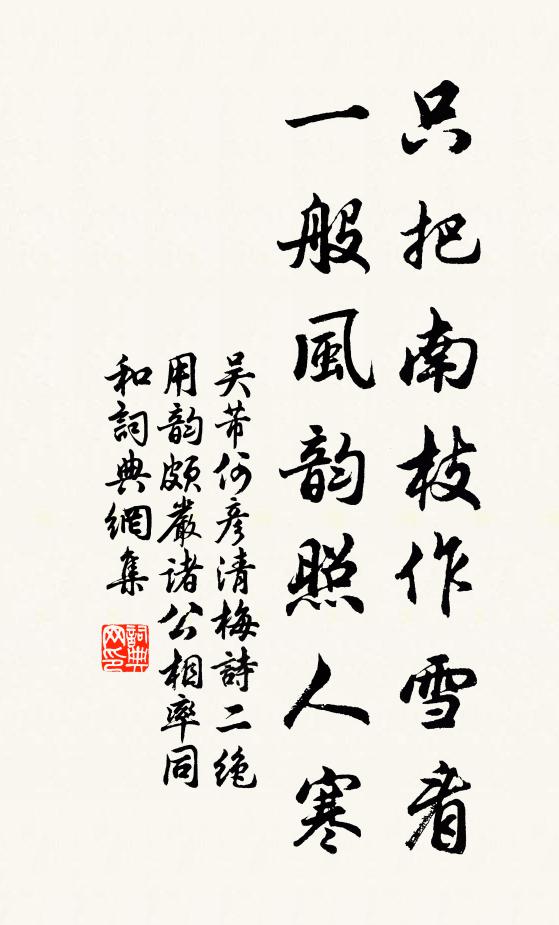 只把南枝作雪看
一般風韵照人寒
吴芾何彦清梅詩二絶
用韵頗嚴諸公相率同
和詞典網集
詞典